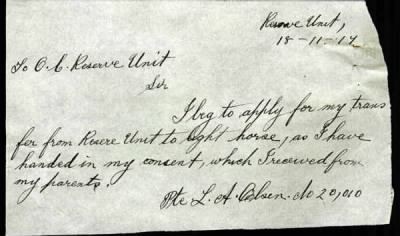 Reserve Unit,
18-11-17
To O.C. Reserve Unit
Sir
I beg to apply for my trans
fer from Reserve Unit to light horse, as I have
handed in my consent, which I received from
my parents.
Pte L. A. Olsen. No 20,010